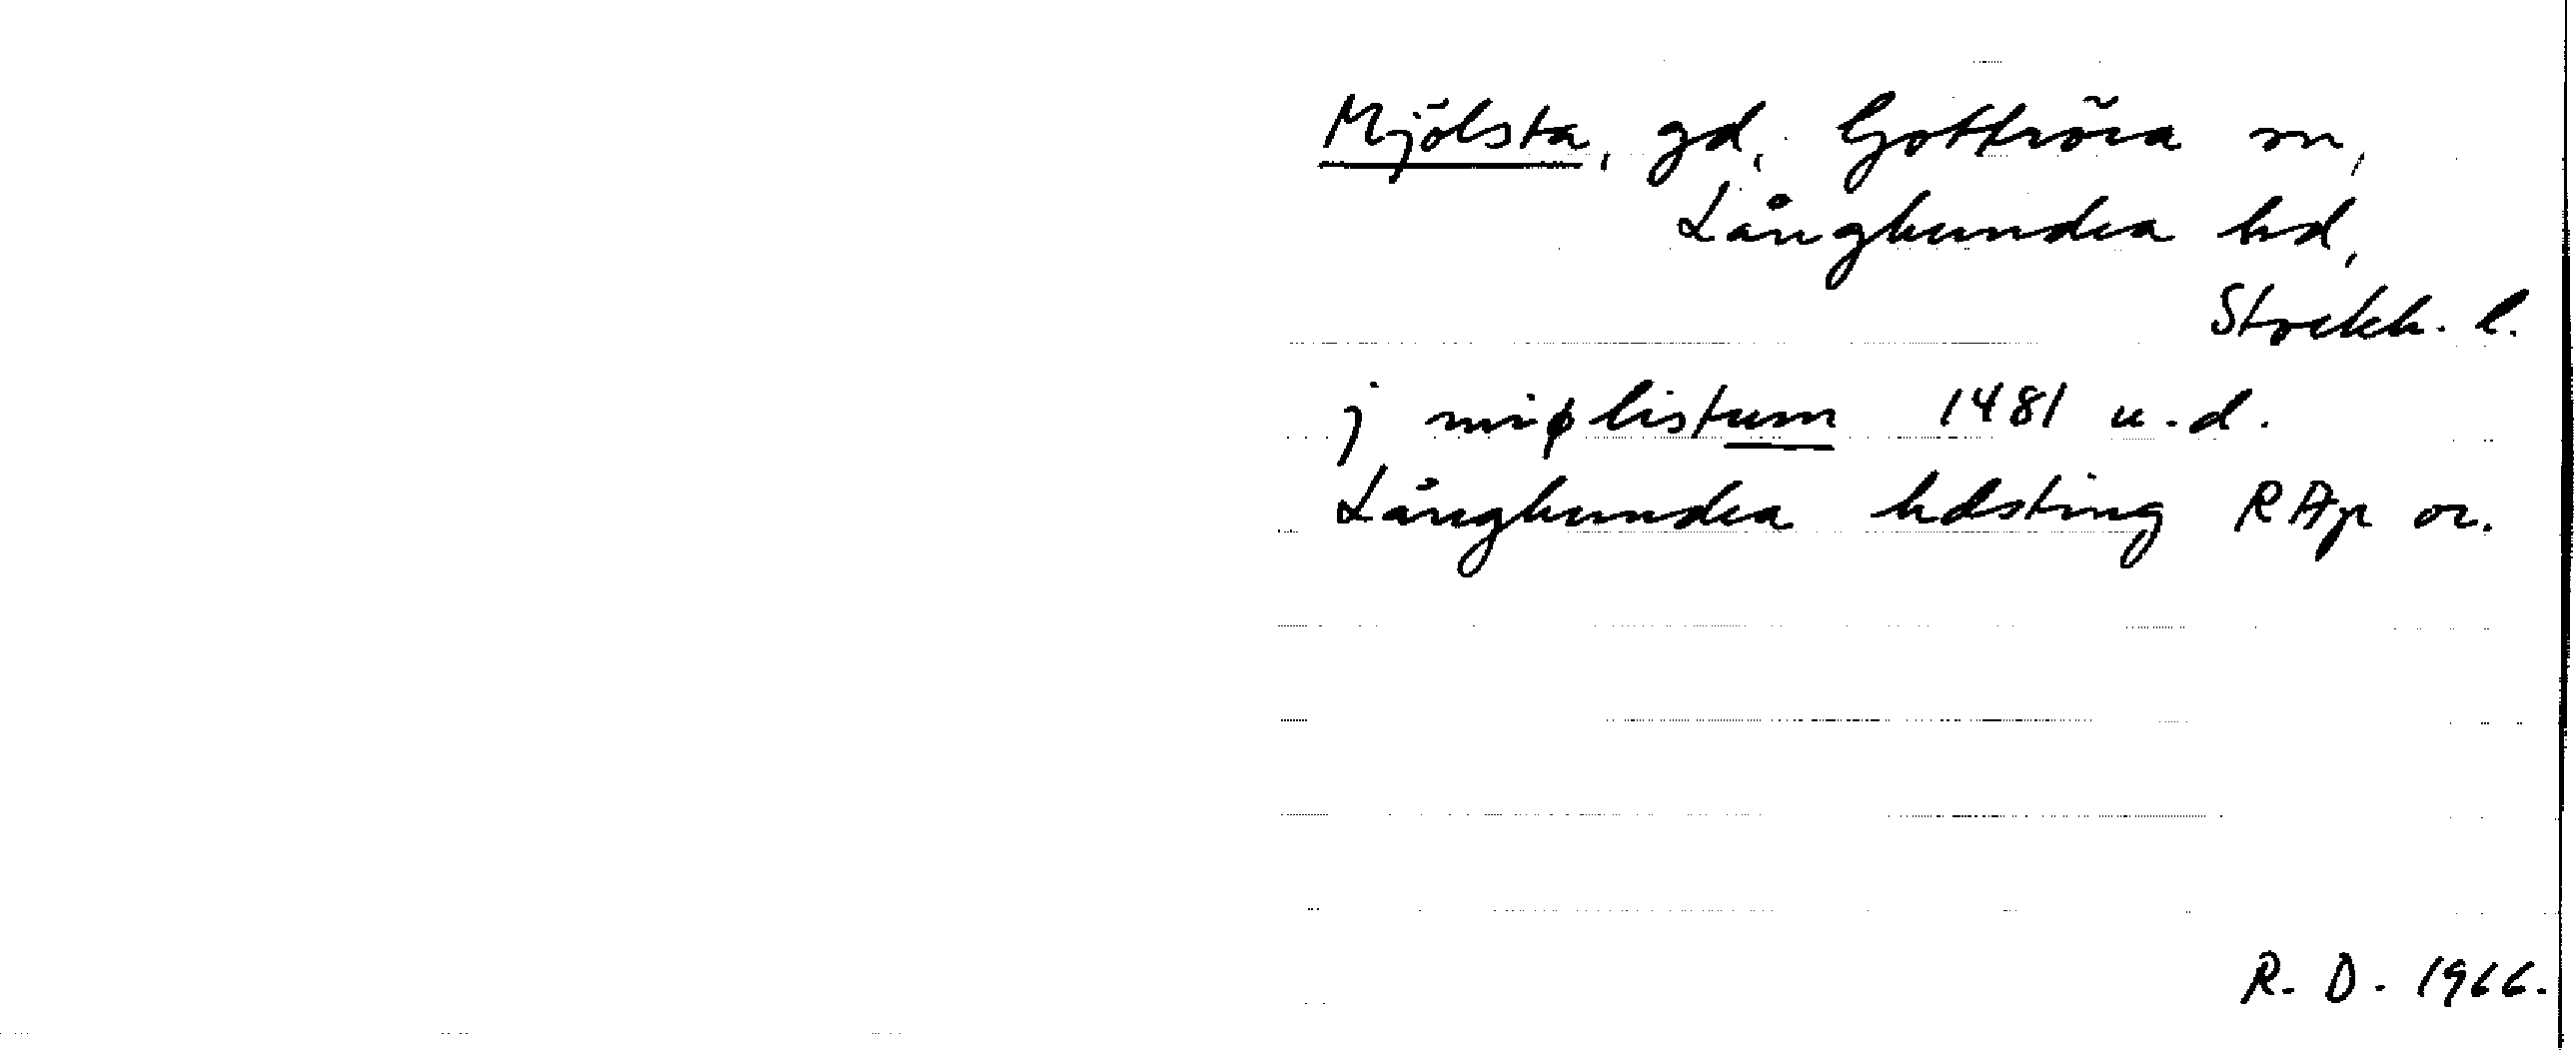 Mjölsta, gd, Gottröra sn,
Långhundra hd,
Stockh. l.
j miøllistum 1481 u.d.
Långhundra hdsting RAp or.
R. D. 1966.